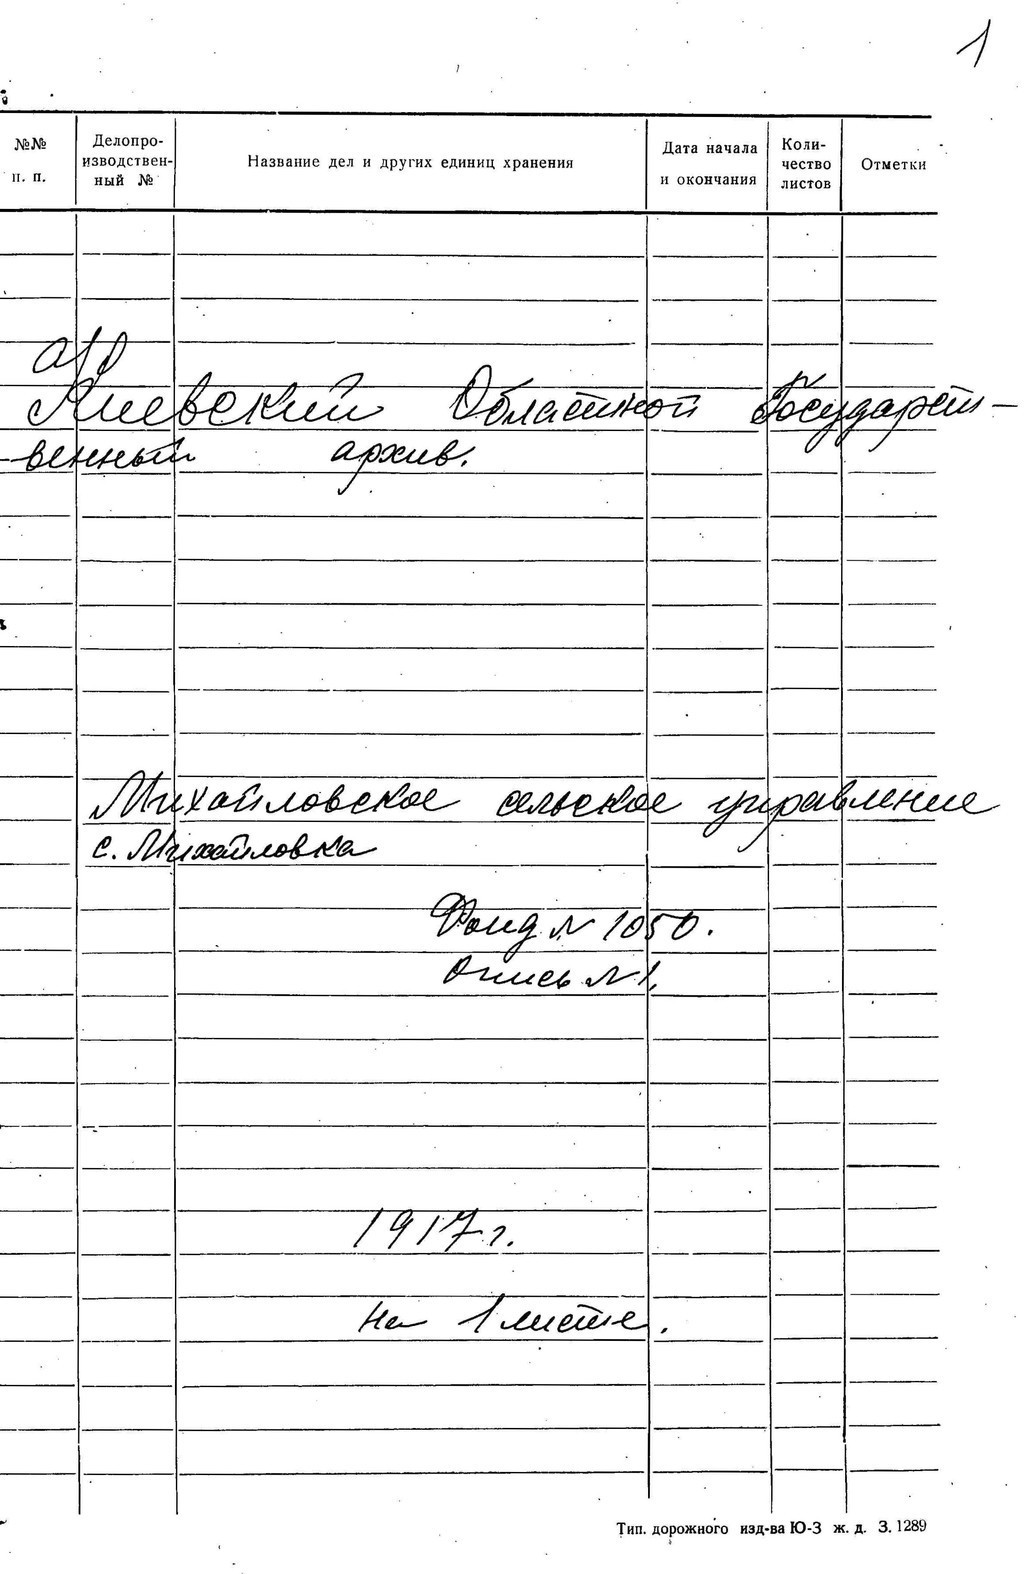 1
№№ п. п.
Делопро-
изводствен-
ный №
Название дел и других единиц хранения
Дата начала
и окончания
Коли-
чество
листов
Отметки
Киевский Областной Государст-
-венный архив.
Михайловское сельское управление
с. Михайловка
Фонд N 1050.
Опись N 1.
1917 г.
на 1 листе.
Тип. дорожного изд-ва Ю-З ж. д. З. 1289